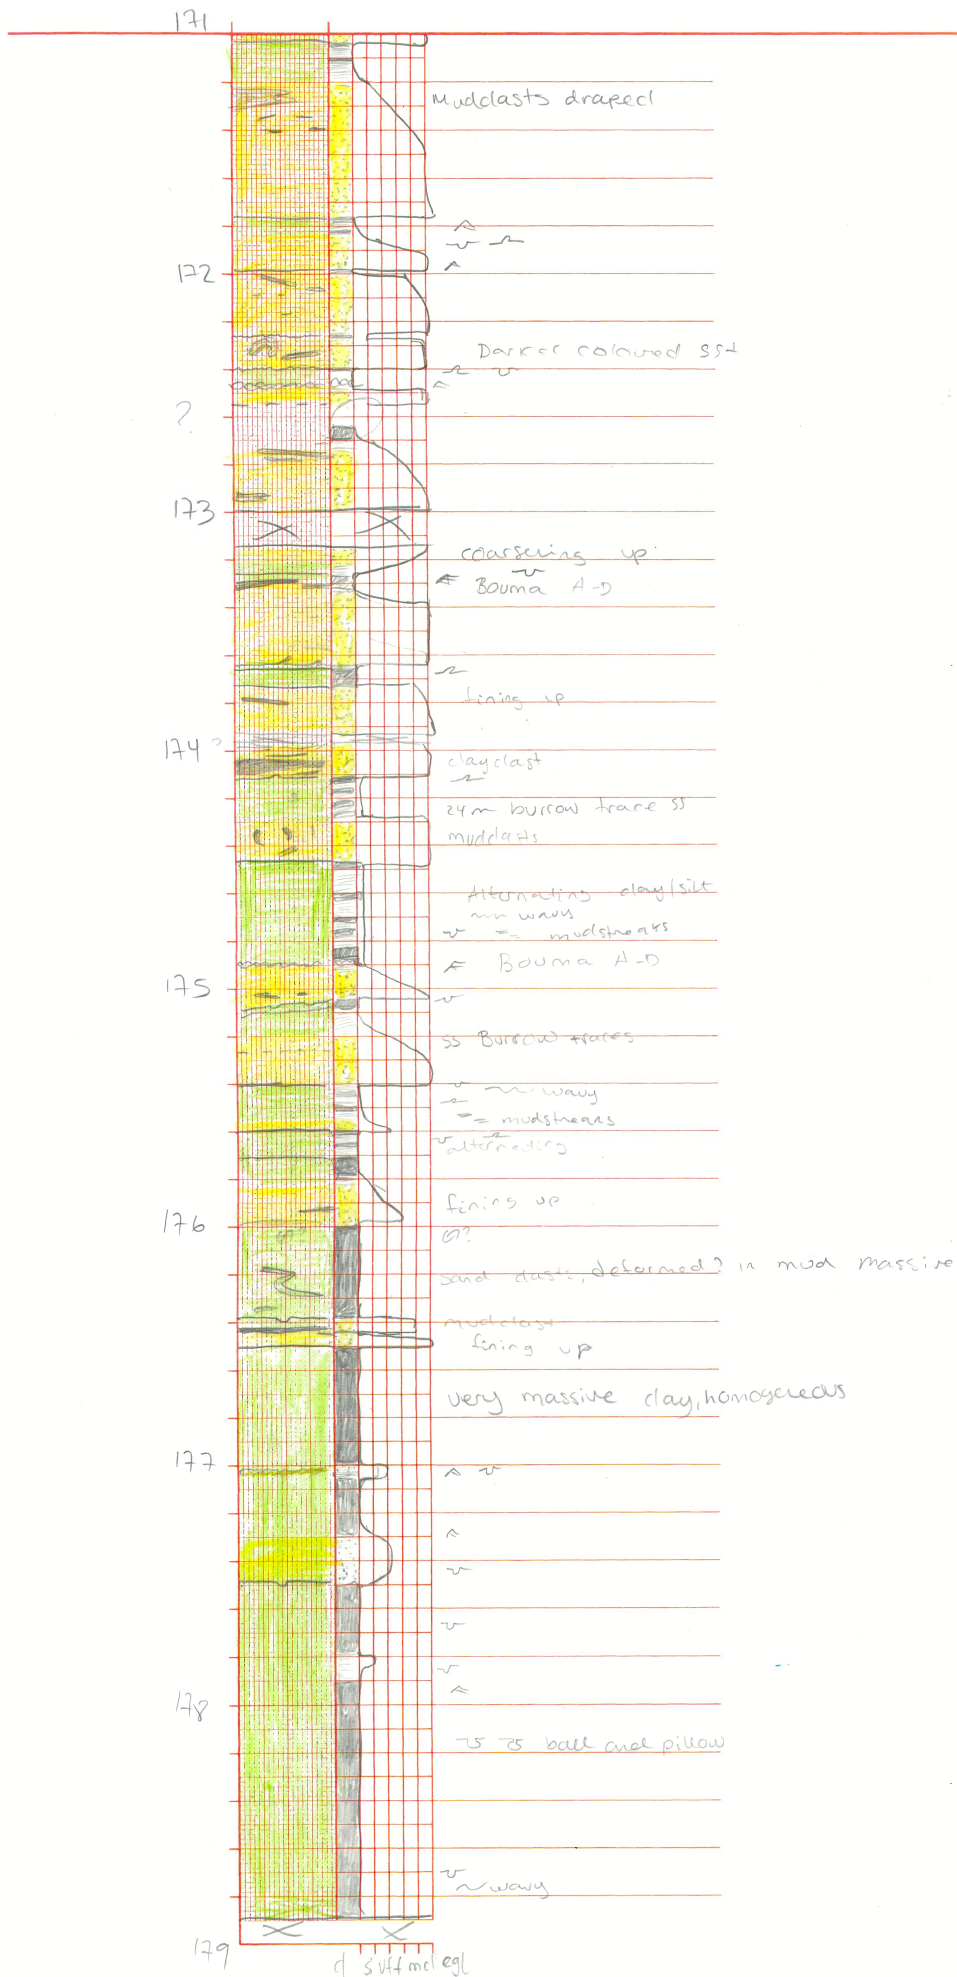 171
Mudclasts draped
172
Darker coloured sst
?
173
coarsening up
Bouma A-D
fining up
174 ?
clayclast
24m burrow trace ss
mudclasts
Alternating clay/silt
~~ wavy
== mudstreaks
Bouma A-D
175
ss Burrow traces
~ wavy
== mudstreaks
alternating
fining up
176
sand clasts, deformed? in mud massive
mudclast
fining up
very massive clay, homogeneous
177
178
ball and pillow
~ wavy
179
cl si vf f m c